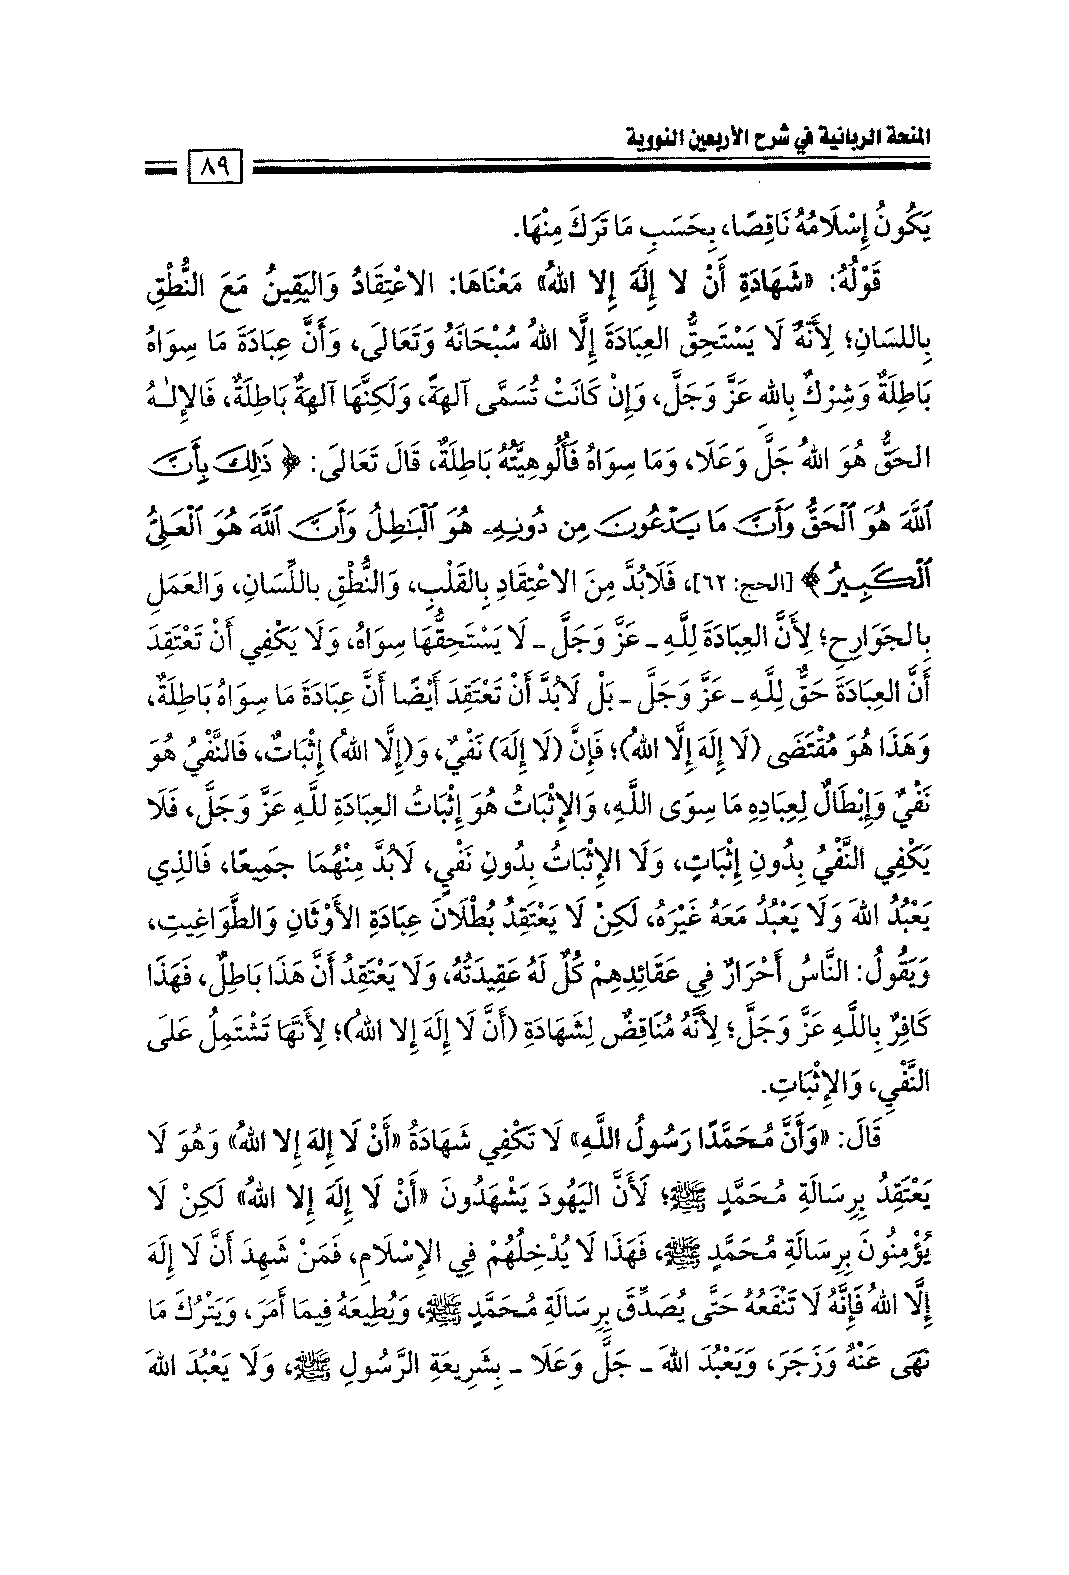 المنحة الربانية في شرح الأربعين النووية
٨٩
يَكُونُ إِسْلَامُهُ نَاقِصًا، بِحَسَبِ مَا تَرَكَ مِنْهَا.
قَوْلُهُ: «شَهَادَةِ أَنْ لا إِلَهَ إِلا اللهُ» مَعْنَاهَا: الاعْتِقَادُ وَاليَقِينُ مَعَ النُّطْقِ
بِاللسَانِ؛ لِأَنَّهُ لَا يَسْتَحِقُّ العِبَادَةَ إِلَّا اللهُ سُبْحَانَهُ وَتَعَالَى، وَأَنَّ عِبَادَةَ مَا سِوَاهُ
بَاطِلَةٌ وَشِرْكٌ بِاللهِ عَزَّ وَجَلَّ، وَإِنْ كَانَتْ تُسَمَّى آلهةً، وَلَكِنَّهَا آلهةٌ بَاطِلَةٌ، فَالإِلَٰهُ
الحَقُّ هُوَ اللهُ جَلَّ وَعَلَا، وَمَا سِوَاهُ فَأُلُوهِيَّتُهُ بَاطِلَةٌ، قَالَ تَعَالَى: ﴿ ذَٰلِكَ بِأَنَّ
ٱللَّهَ هُوَ ٱلْحَقُّ وَأَنَّ مَا يَدْعُونَ مِن دُونِهِۦ هُوَ ٱلْبَٰطِلُ وَأَنَّ ٱللَّهَ هُوَ ٱلْعَلِىُّ
ٱلْكَبِيرُ﴾ [الحج: ٦٢]، فَلَابُدَّ مِنَ الاعْتِقَادِ بِالقَلْبِ، وَالنُّطْقِ بِاللِّسَانِ، وَالعَمَلِ
بِالجَوَارِحِ؛ لِأَنَّ العِبَادَةَ لِلَّهِ ـ عَزَّ وَجَلَّ ـ لَا يَسْتَحِقُّهَا سِوَاهُ، وَلَا يَكْفِي أَنْ تَعْتَقِدَ
أَنَّ العِبَادَةَ حَقٌّ لِلَّهِ ـ عَزَّ وَجَلَّ ـ بَلْ لَابُدَّ أَنْ تَعْتَقِدَ أَيْضًا أَنَّ عِبَادَةَ مَا سِوَاهُ بَاطِلَةٌ،
وَهَذَا هُوَ مُقْتَضَى (لَا إِلَهَ إِلَّا اللهُ)؛ فَإِنَّ (لَا إِلَهَ) نَفْيٌ، وَ(إِلَّا اللهُ) إِثْبَاتٌ، فَالنَّفْيُ هُوَ
نَفْيٌ وَإِبْطَالٌ لِعِبَادِهِ مَا سِوَى اللَّهِ، وَالإِثْبَاتُ هُوَ إِثْبَاتُ العِبَادَةِ للَّهِ عَزَّ وَجَلَّ، فَلَا
يَكْفِي النَّفْيُ بِدُونِ إِثْبَاتٍ، وَلَا الإِثْبَاتُ بِدُونِ نَفْيٍ، لَابُدَّ مِنْهُمَا جَمِيعًا، فَالذِي
يَعْبُدُ اللهَ وَلَا يَعْبُدُ مَعَهُ غَيْرَهُ، لَكِنْ لَا يَعْتَقِدُ بُطْلَانَ عِبَادَةِ الأَوْثَانِ وَالطَّوَاغِيتِ،
وَيَقُولُ: النَّاسُ أَحْرَارٌ فِي عَقَائِدِهِمْ كُلٌّ لَهُ عَقِيدَتُهُ، وَلَا يَعْتَقِدُ أَنَّ هَذَا بَاطِلٌ، فَهَذَا
كَافِرٌ بِاللَّهِ عَزَّ وَجَلَّ؛ لِأَنَّهُ مُنَاقِضٌ لِشَهَادَةِ (أَنَّ لَا إِلَهَ إِلا اللهُ)؛ لِأَنَّهَا تَشْتَمِلُ عَلَى
النَّفْيِ، وَالإِثْبَاتِ.
قَالَ: «وَأَنَّ مُحَمَّدًا رَسُولُ اللَّهِ» لَا تَكْفِي شَهَادَةُ «أَنْ لَا إِلهَ إِلا اللهُ» وَهُوَ لَا
يَعْتَقِدُ بِرِسَالَةِ مُحَمَّدٍ ﷺ؛ لَأَنَّ اليَهُودَ يَشْهَدُونَ «أَنْ لَا إِلَهَ إِلا اللهُ» لَكِنْ لَا
يُؤْمِنُونَ بِرِسَالَةِ مُحَمَّدٍ ﷺ، فَهَذَا لَا يُدْخِلُهُمْ فِي الإِسْلَامِ، فَمَنْ شَهِدَ أَنَّ لَا إِلَهَ
إِلَّا اللهُ فَإِنَّهُ لَا تَنْفَعُهُ حَتَّى يُصَدِّقَ بِرِسَالَةِ مُحَمَّدٍ ﷺ، وَيُطِيعَهُ فِيمَا أَمَرَ، وَيَتْرُكَ مَا
نَهَى عَنْهُ وَزَجَرَ، وَيَعْبُدَ اللهَ ـ جَلَّ وَعَلَا ـ بِشَرِيعَةِ الرَّسُولِ ﷺ، وَلَا يَعْبُدَ اللهَ